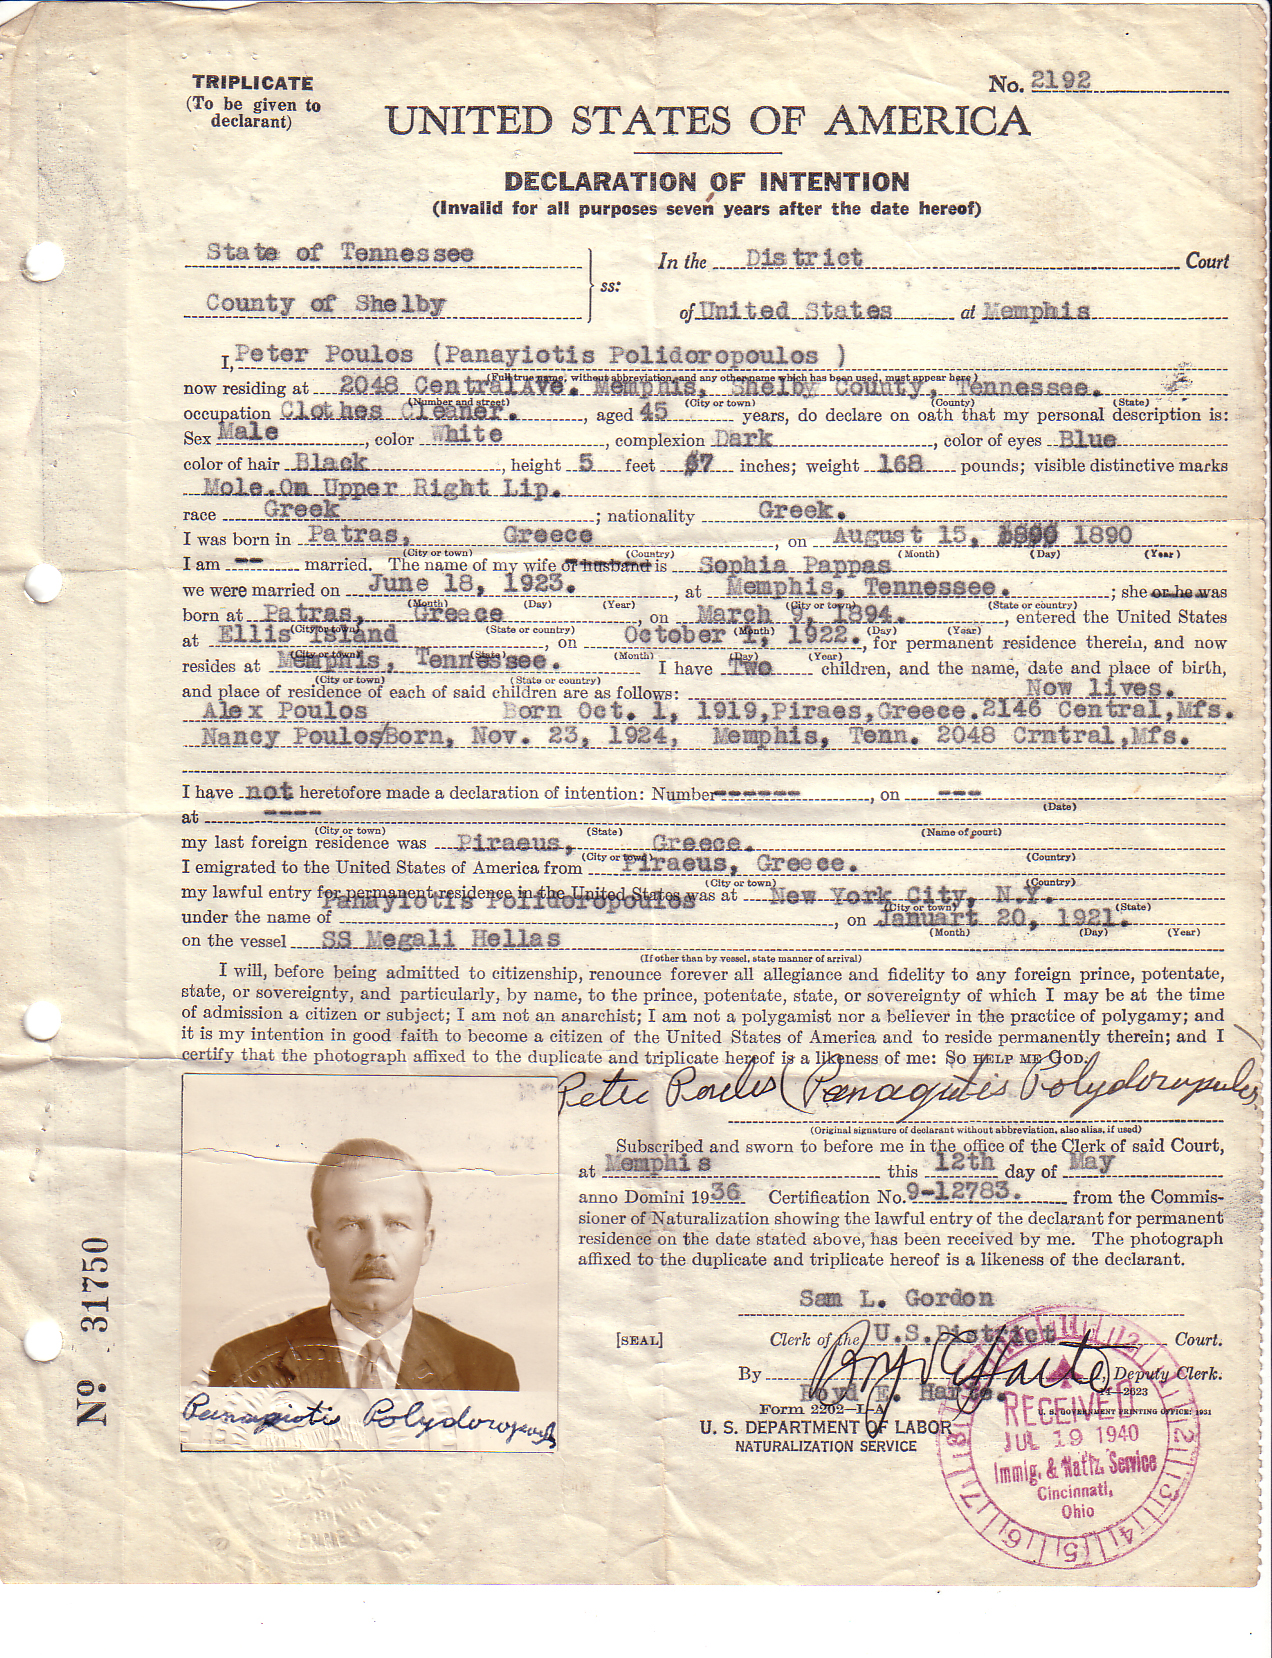 TRIPLICATE
(To be given to
declarant)
No. 2192
UNITED STATES OF AMERICA
DECLARATION OF INTENTION
(Invalid for all purposes seven years after the date hereof)
State of Tennessee
County of Shelby
ss:
In the District Court
of United States at Memphis
I, Peter Poulos (Panayiotis Polidoropoulos )
(Full true name, without abbreviation, and any other name which has been used, must appear here)
now residing at 2048 Central Ave. Memphis, Shelby County, Tennessee.
(Number and street) (City or town) (County) (State)
occupation Clothes Cleaner. , aged 45 years, do declare on oath that my personal description is:
Sex Male , color White , complexion Dark , color of eyes Blue
color of hair Black , height 5 feet 7 inches; weight 168 pounds; visible distinctive marks
Mole.On Upper Right Lip.
race Greek ; nationality Greek.
I was born in Patras, Greece , on August 15, 1890
(City or town) (Country) (Month) (Day) (Year)
I am -- married. The name of my wife or husband is Sophia Pappas
we were married on June 18, 1923. , at Memphis, Tennessee. ; she or he was
(Month) (Day) (Year) (City or town) (State or country)
born at Patras, Greece , on March 9, 1894. , entered the United States
(City or town) (State or country) (Month) (Day) (Year)
at Ellis Island , on October 1, 1922. , for permanent residence therein, and now
(City or town) (State) (Month) (Day) (Year)
resides at Memphis, Tennessee. I have Two children, and the name, date and place of birth,
(City or town) (State or country)
and place of residence of each of said children are as follows: Now lives.
Alex Poulos Born Oct. 1, 1919,Piraes,Greece.2146 Central,Mfs.
Nancy Poulos/Born, Nov. 23, 1924, Memphis, Tenn. 2048 Crntral,Mfs.
I have not heretofore made a declaration of intention: Number ------ , on ---
(Date)
at ----
(City or town) (State) (Name of court)
my last foreign residence was Piraeus, Greece.
(City or town) (Country)
I emigrated to the United States of America from Piraeus, Greece.
(City or town) (Country)
my lawful entry for permanent residence in the United States was at New York City, N.Y.
(City or town) (State)
under the name of Panayiotis Polidoropoulos , on Januart 20, 1921.
(Month) (Day) (Year)
on the vessel SS Megali Hellas
(If other than by vessel, state manner of arrival)
I will, before being admitted to citizenship, renounce forever all allegiance and fidelity to any foreign prince, potentate,
state, or sovereignty, and particularly, by name, to the prince, potentate, state, or sovereignty of which I may be at the time
of admission a citizen or subject; I am not an anarchist; I am not a polygamist nor a believer in the practice of polygamy; and
it is my intention in good faith to become a citizen of the United States of America and to reside permanently therein; and I
certify that the photograph affixed to the duplicate and triplicate hereof is a likeness of me: SO HELP ME GOD.
Peter Poulos (Panagiotis Polydoropoulos)
(Original signature of declarant without abbreviation, also alias, if used)
Subscribed and sworn to before me in the office of the Clerk of said Court,
at Memphis this 12th day of May
anno Domini 1936 Certification No. 9-12783. from the Commis-
sioner of Naturalization showing the lawful entry of the declarant for permanent
residence on the date stated above, has been received by me. The photograph
affixed to the duplicate and triplicate hereof is a likeness of the declarant.
Sam L. Gordon
[SEAL] Clerk of the U.S.District Court.
By Deputy Clerk.
Boyd
Form 2202-L-A
14-2623
U. S. GOVERNMENT PRINTING OFFICE: 1931
U. S. DEPARTMENT OF LABOR
NATURALIZATION SERVICE
Panagiotis Polydoropouls
No. 31750
RECEIVED
JUL 19 1940
Immig. & Natlz. Service
Cincinnati,
Ohio
11 12 2 3 4 5 6 7 8